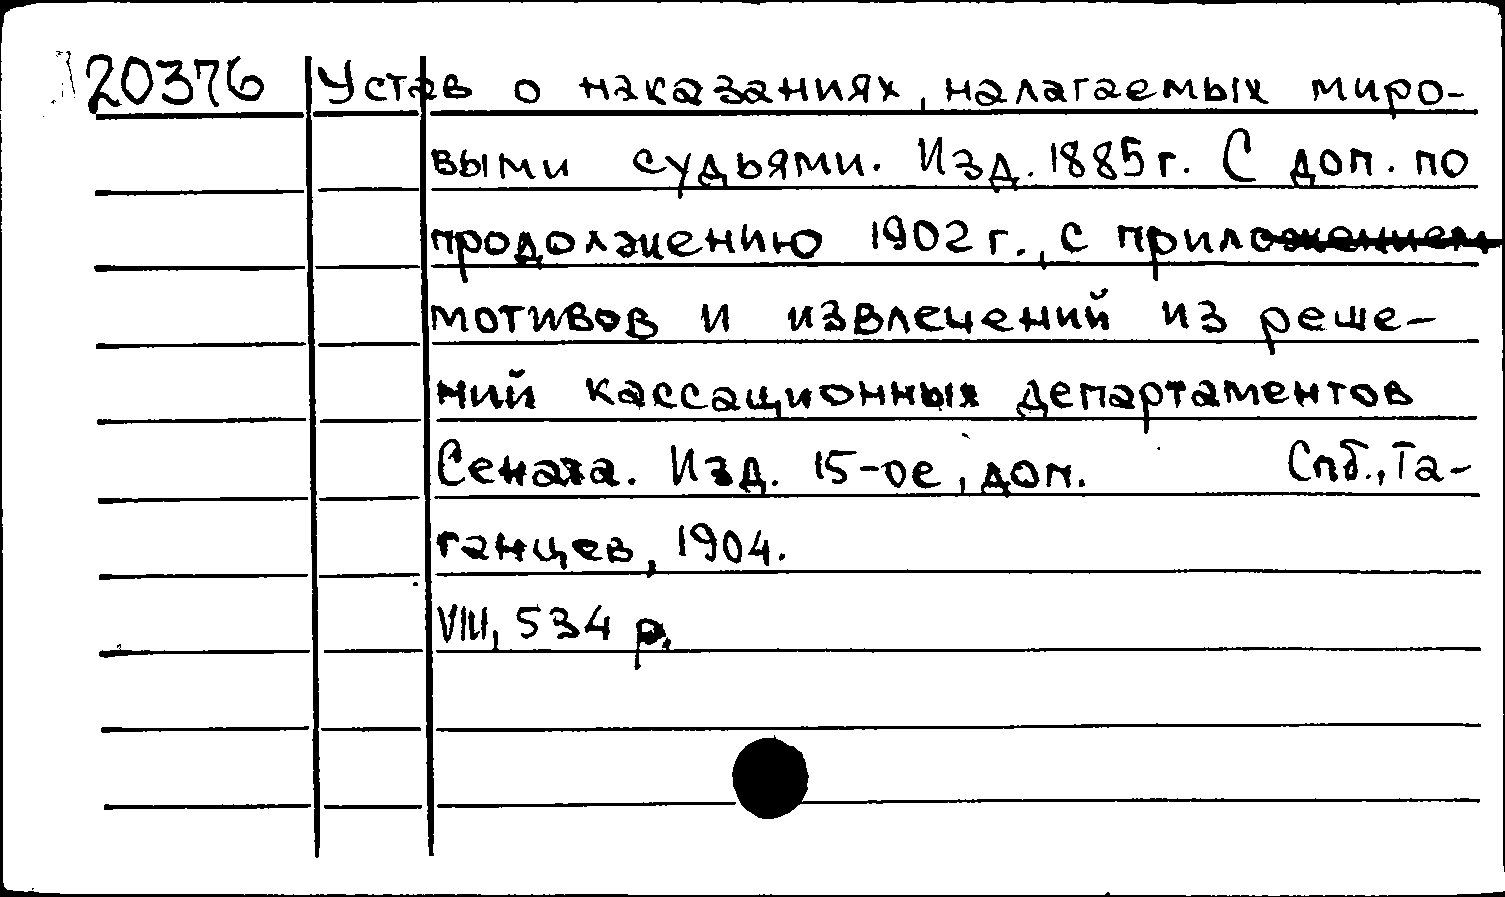 20376 Устав о наказаниях, налагаемых миро-
выми судьями. Изд. 1885 г. С доп. по
продолжению 1902 г., с приложением
мотивов и извлечений из реше-
ний кассационных департаментов
Сената. Изд. 15-ое, доп. Спб., Та-
ганцев, 1904.
VIII, 534 р.